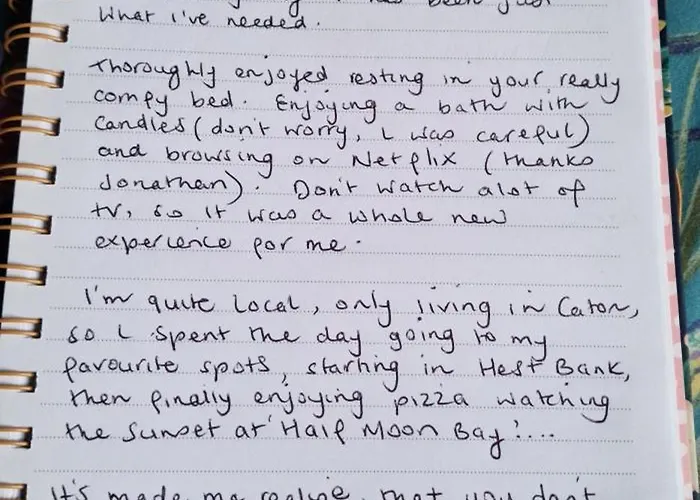 been just
What I've needed.
Thoroughly enjoyed resting in your really
comfy bed. Enjoying a bath with
candles (don't worry, I was careful)
and browsing on Netflix (thanks
Jonathan). Don't watch alot of
tv, so it was a whole new
experience for me.
I'm quite local, only living in Caton,
so I spent the day going to my
favourite spots, starting in Hest Bank,
then finally enjoying pizza watching
the sunset at Half Moon Bay!...
It's made me realise that you don't